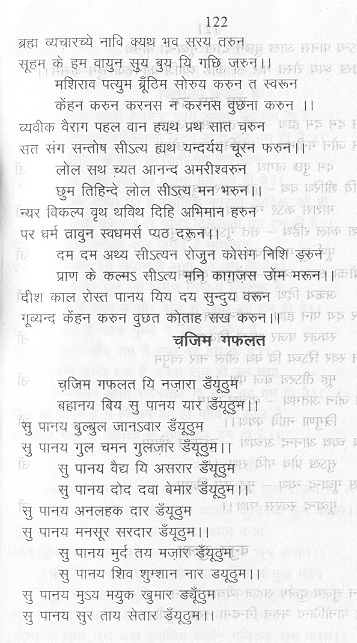 122
ब्रह्म व्यचारच्ये नावि क्यथ भव सरय तरुन
सूहम के हम वायुन सुय बुय यि गछि जरुन।।
मशिराव पत्युम ब्रूँठिम सोरुय करुन त स्वरून
केंहन करुन करनस न करनस वुछना करुन ।।
व्यवीक वैराग पहल वान ह्यथ प्रथ सात चरुन
सत संग सन्तोष सीऽत्य ह्यथ यन्दर्यय चूरन फरुन।।
लोल सथ च्यत आनन्द अमरीश्वरुन
छुम तिहिन्दे लोल सीऽत्य मन भरुन।।
न्यर विकल्प वृथ थविथ दिहि अभिमान हरुन
पर धर्म त्रावुन स्वधर्मस प्यठ दरून।।
दम दम अथ्य सीऽत्यन रोजुन कोसंग निशि ड़रुन
प्राण के कल्मऽ सीऽत्य मनि काग़जस ओंम मरून।।
दीश काल रोस्त पानय यिय दय सुन्दुय वरून
गूव्यन्द केंहन करुन वुछत कोताह सख करुन।।
च़जिम गफलत
च़जिम गफलत यि नज़ारा डँयूठुम
बहानय बिय सु पानय यार डँयूठुम।।
सु पानय बुल्बुल जानऽवार डँयूठुम
सु पानय गुल चमन गुलजार डँयूठुम।।
सु पानय वैद्य यि असरार डँयूठुम
सु पानय दोद दवा बेमार डँयूठुम।।
सु पानय अनलहक दार डँयूठुम
सु पानय मनसूर सरदार डँयूठुम।।
सु पानय मुर्द तय मजार डँयूठुम
सु पानय शिव शुम्शान नार डयूठुम।।
सु पानय मुऽय मयुक खुमार डयूँठुम
सु पानय सुर ताय सेतार डँयूठुम।।